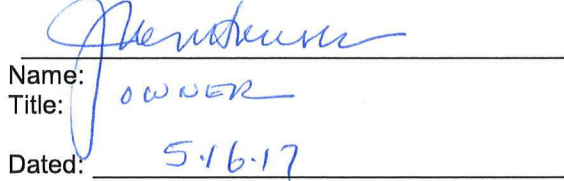 Name:
Title: OWNER
Dated: 5.16.17